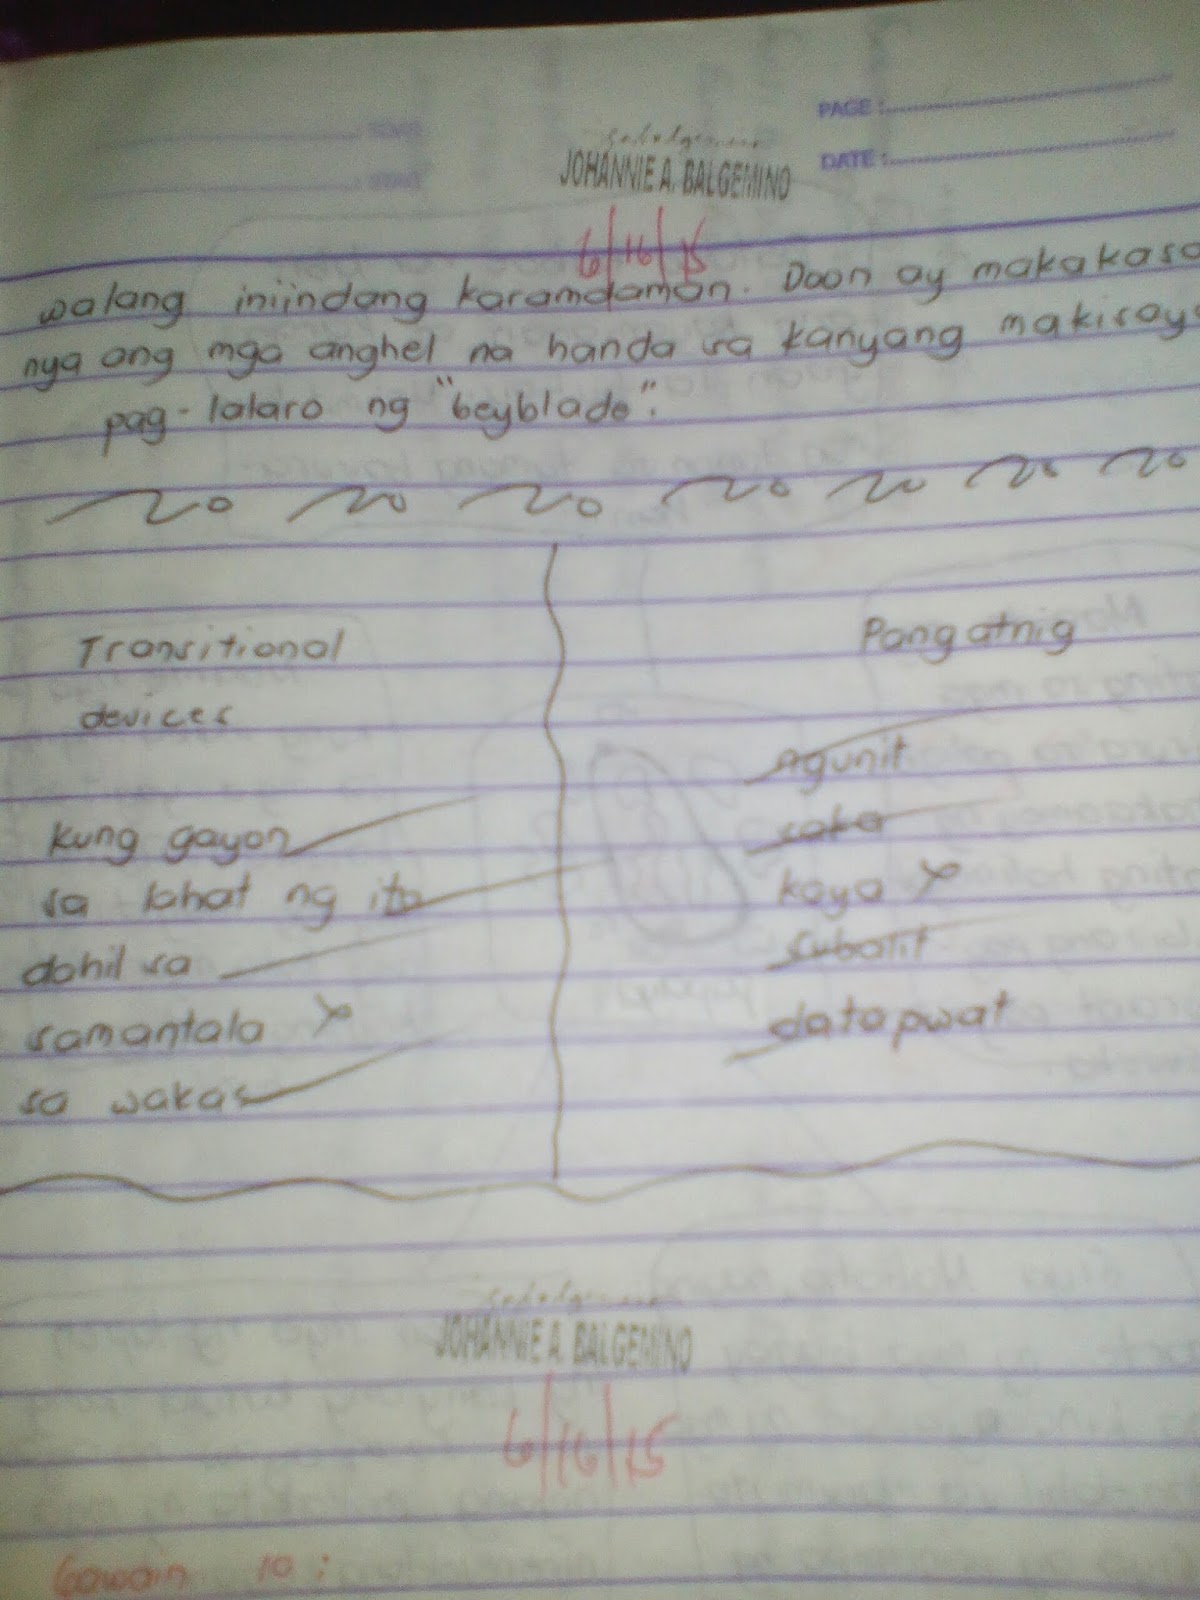 PAGE :
DATE :
JOHANNIE A. BALGEMINO
6/16/15
walang iniindang karamdaman. Doon ay makakasa
nya ang mga anghel na handa sa kanyang makisay
pag-lalaro ng "beyblade".
Transitional
devices
kung gayon
sa lahat ng ito
dahil sa
samantala x
sa wakas
Pangatnig
Agunit
saka
kaya x
subalit
datapwat
JOHANNIE A. BALGEMINO
6/16/15
Gawain 10: